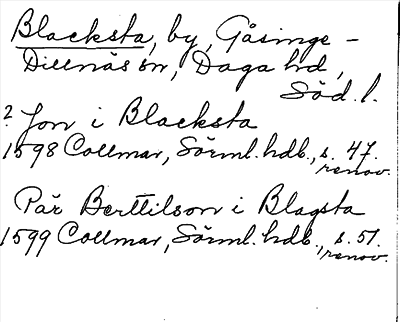 Blacksta, by, Gåsinge -
Dillnäs sn, Daga hd,
Söd. l.
? Jon i Blacksta
1598 Collmar, Sörml. hdb., s. 47.
renov.
Pär Berttilson i Blagsta
1599 Collmar, Sörml. hdb., s. 51.
renov.